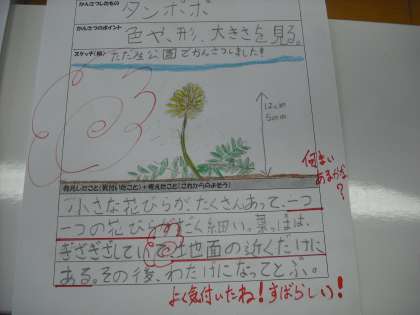 かんさつしたもの
タンポポ
かんさつのポイント
色や、形、大きさを見る。
スケッチ(絵)
ただ公園でかんさつしました!
12cm
5mm
発見したこと(気付いたこと)+考えたこと(これからのよそう)
何まいあるかな?
小さな花びらが、たくさんあって、一つ
一つの花びらがだん細い。葉っぱは、
ぎざぎざしていて土地面の近くだけに
ある。その後、わたげになってとぶ。
よく気付いたね!すばらしい!